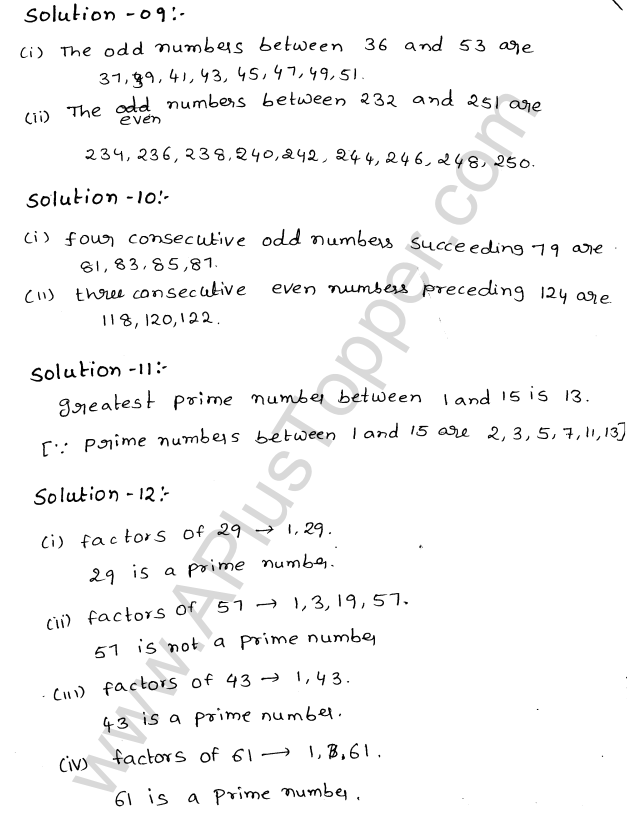 Solution -09:-
(i) The odd numbers between 36 and 53 are
37, 39, 41, 43, 45, 47, 49, 51.
(ii) The odd numbers between 232 and 251 are
even
234, 236, 238, 240, 242, 244, 246, 248, 250.
Solution -10:-
(i) four consecutive odd numbers succeeding 79 are
81, 83, 85, 87.
(ii) three consecutive even numbers preceding 124 are
118, 120, 122.
Solution -11:-
greatest prime number between 1 and 15 is 13.
[∵ prime numbers between 1 and 15 are 2, 3, 5, 7, 11, 13]
Solution -12:-
(i) factors of 29 → 1, 29.
29 is a prime number.
(ii) factors of 57 → 1, 3, 19, 57.
57 is not a prime number
(iii) factors of 43 → 1, 43.
43 is a prime number.
(iv) factors of 61 → 1, 61.
61 is a prime number.
www.APlusTopper.com